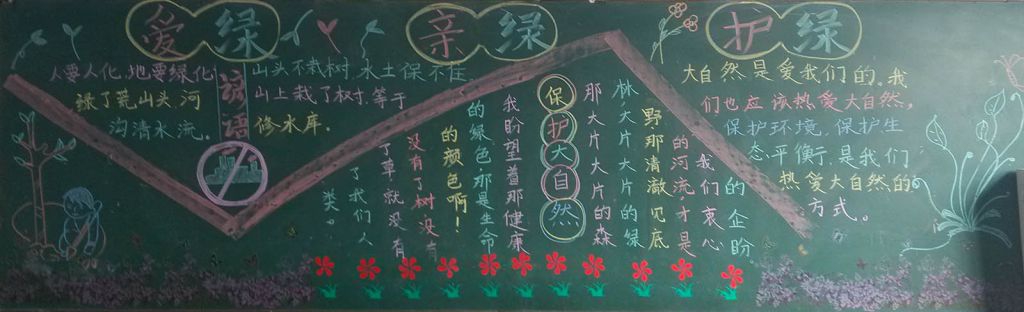 爱绿
亲绿
护绿
人要人化,地要绿化
绿了荒山头,河
沟清水流。
谚语
山头不栽树,水土保不住
山上栽了树,等于
修水库。
保护大自然
我盼望着那健康
的绿色,那是生命
的颜色啊!
没有了树,没有
了草,就没有
了我们人
类。
那大片大片的森
林,大片大片的绿
野,那清澈见底
的河流,才是
我们衷心
的企盼
大自然是爱我们的。我
们也应该热爱大自然,
保护环境,保护生
态平衡,是我们
热爱大自然的
方式。